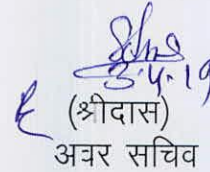 3.4.19
(श्रीदास)
अवर सचिव